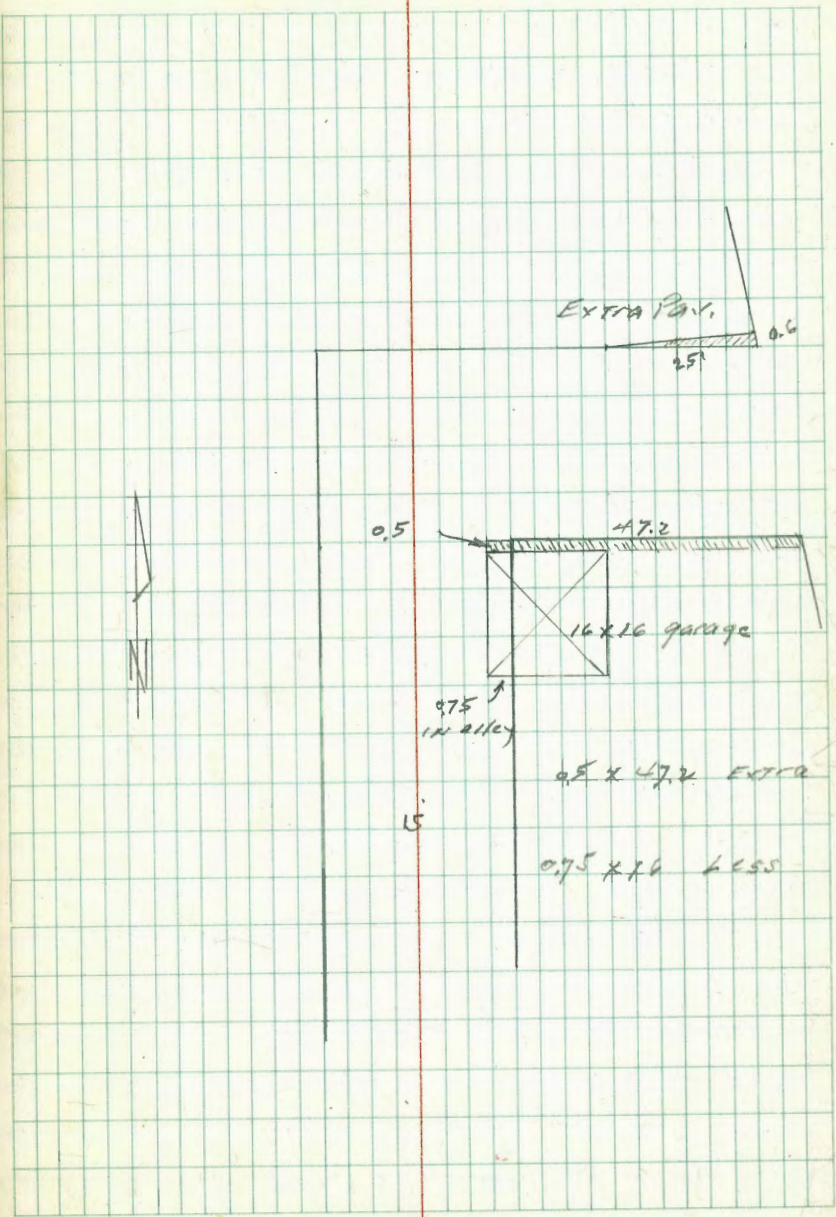 Extra Pav.
0.6
25'
0.5
47.2
16 x 16 garage
0.75
in alley
N
0.5 x 47.2 Extra
15'
0.75 x 16 Less